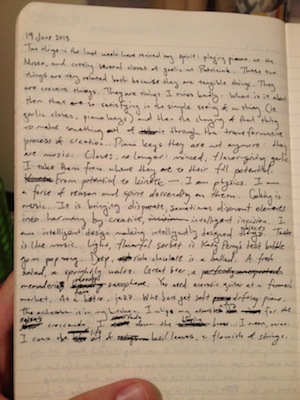 19 June 2013
Two things in the last week have raised my spirit: playing piano at the
Museo, and cutting several cloves of garlic at Patricia's. These two
things are very related both because they are tangible things. They
are creative things. They are things I miss badly. Where is it about
them that are so satisfying is the simple seeing of a thing (ie
garlic cloves, piano keys) and then the changing of that thing
to make something out of through the transformative
process of creation. Piano keys they are not anymore: they
are music. Cloves, no longer: minced, flavor-giving garlic
I take them from where they are to their full potential.
From potential to kinetic — I am physics. I am
a force of reason and spirit descending on them. Cooking is
music. It is bringing disparate, sometimes dissonant elements
into harmony by creative, intelligent incision. I
am intelligent design making intelligently designed things. Taste
is like music. Light, flavorful sorbet is Katy Perry's best bubble
gum pop song. Deep, rich chocolate is a ballad. A fresh
salad, a sprightly waltz. Great beer, a
meandering saxophone. You need acoustic guitar at a farmers
market. At a bistro, jazz. Wine bar get soft drifting piano.
The orchestra is in my kitchen. I whip my for the
crescendo. I down the
I comb the out of basil leaves, a flourish of strings.